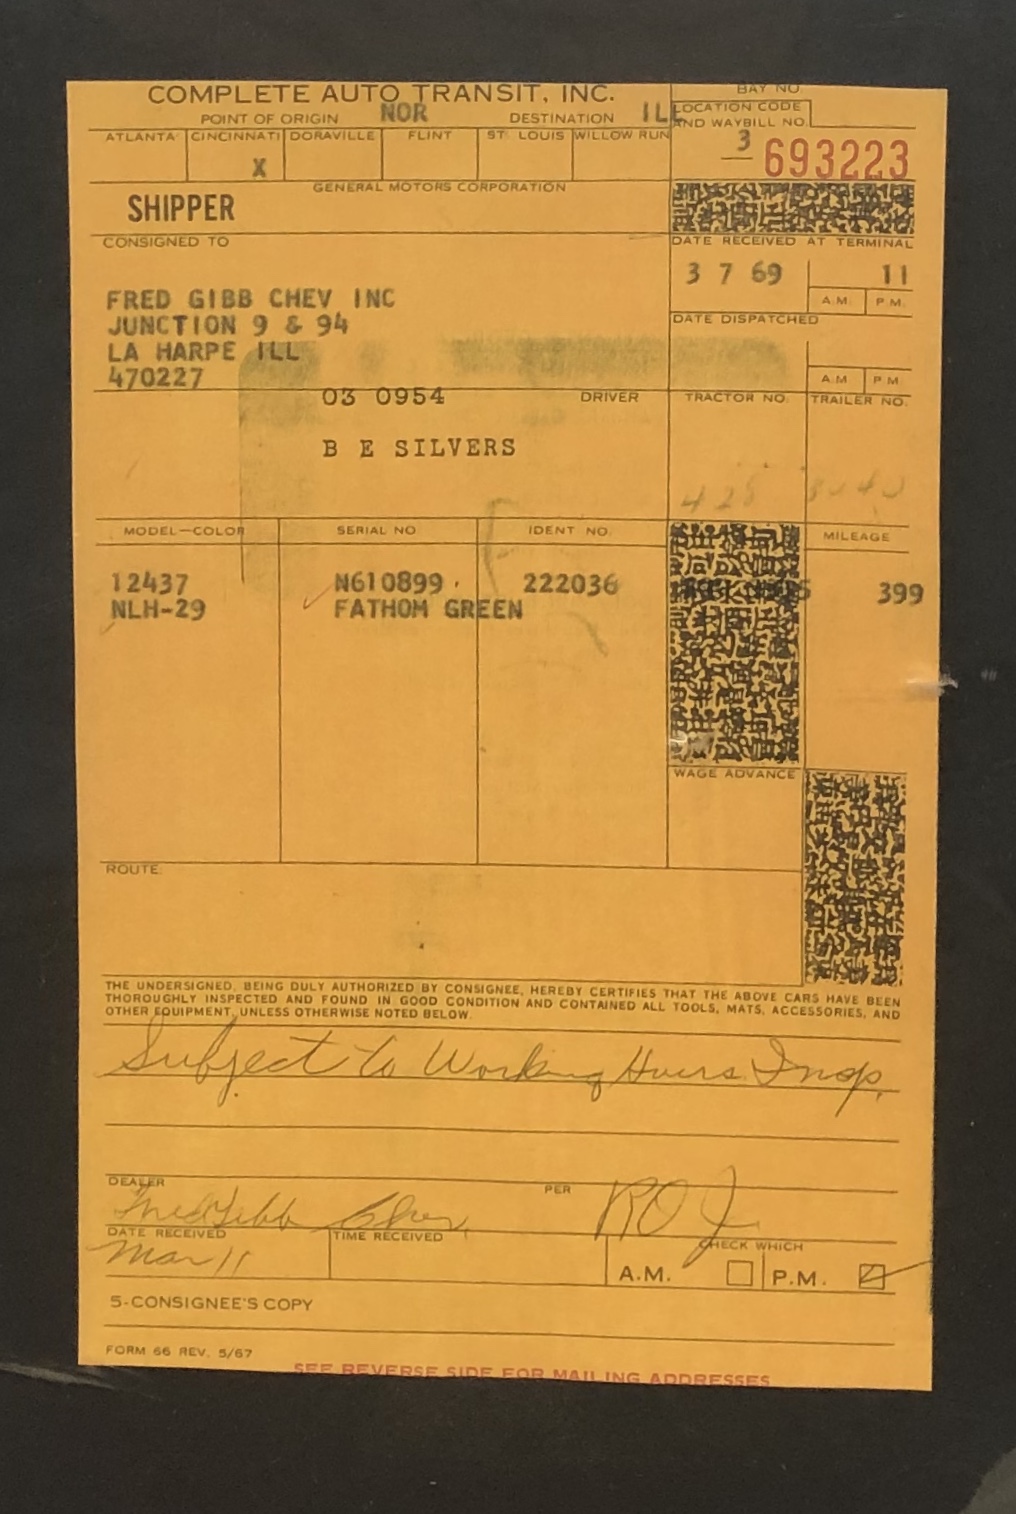 BAY NO
COMPLETE AUTO TRANSIT, INC.
POINT OF ORIGIN NOR DESTINATION ILL
LOCATION CODE
AND WAYBILL NO.
ATLANTA CINCINNATI DORAVILLE FLINT ST. LOUIS WILLOW RUN
X
3 693223
GENERAL MOTORS CORPORATION
SHIPPER
CONSIGNED TO
DATE RECEIVED AT TERMINAL
3 7 69 11
A.M. P.M.
FRED GIBB CHEV INC
JUNCTION 9 & 94
LA HARPE ILL
470227
DATE DISPATCHED
A.M P.M
03 0954 DRIVER
TRACTOR NO. TRAILER NO.
B E SILVERS
428
MODEL—COLOR SERIAL NO IDENT NO. MILEAGE
12437 N610899 222036 399
NLH-29 FATHOM GREEN
WAGE ADVANCE
ROUTE:
THE UNDERSIGNED, BEING DULY AUTHORIZED BY CONSIGNEE, HEREBY CERTIFIES THAT THE ABOVE CARS HAVE BEEN
THOROUGHLY INSPECTED AND FOUND IN GOOD CONDITION AND CONTAINED ALL TOOLS, MATS, ACCESSORIES, AND
OTHER EQUIPMENT, UNLESS OTHERWISE NOTED BELOW.
Subject to Working Hours Insp.
DEALER PER
Fred Gibb Chev. ROJ
DATE RECEIVED TIME RECEIVED CHECK WHICH
Mar 11
A.M. P.M.
5-CONSIGNEE'S COPY
FORM 66 REV. 5/67
SEE REVERSE SIDE FOR MAILING ADDRESSES